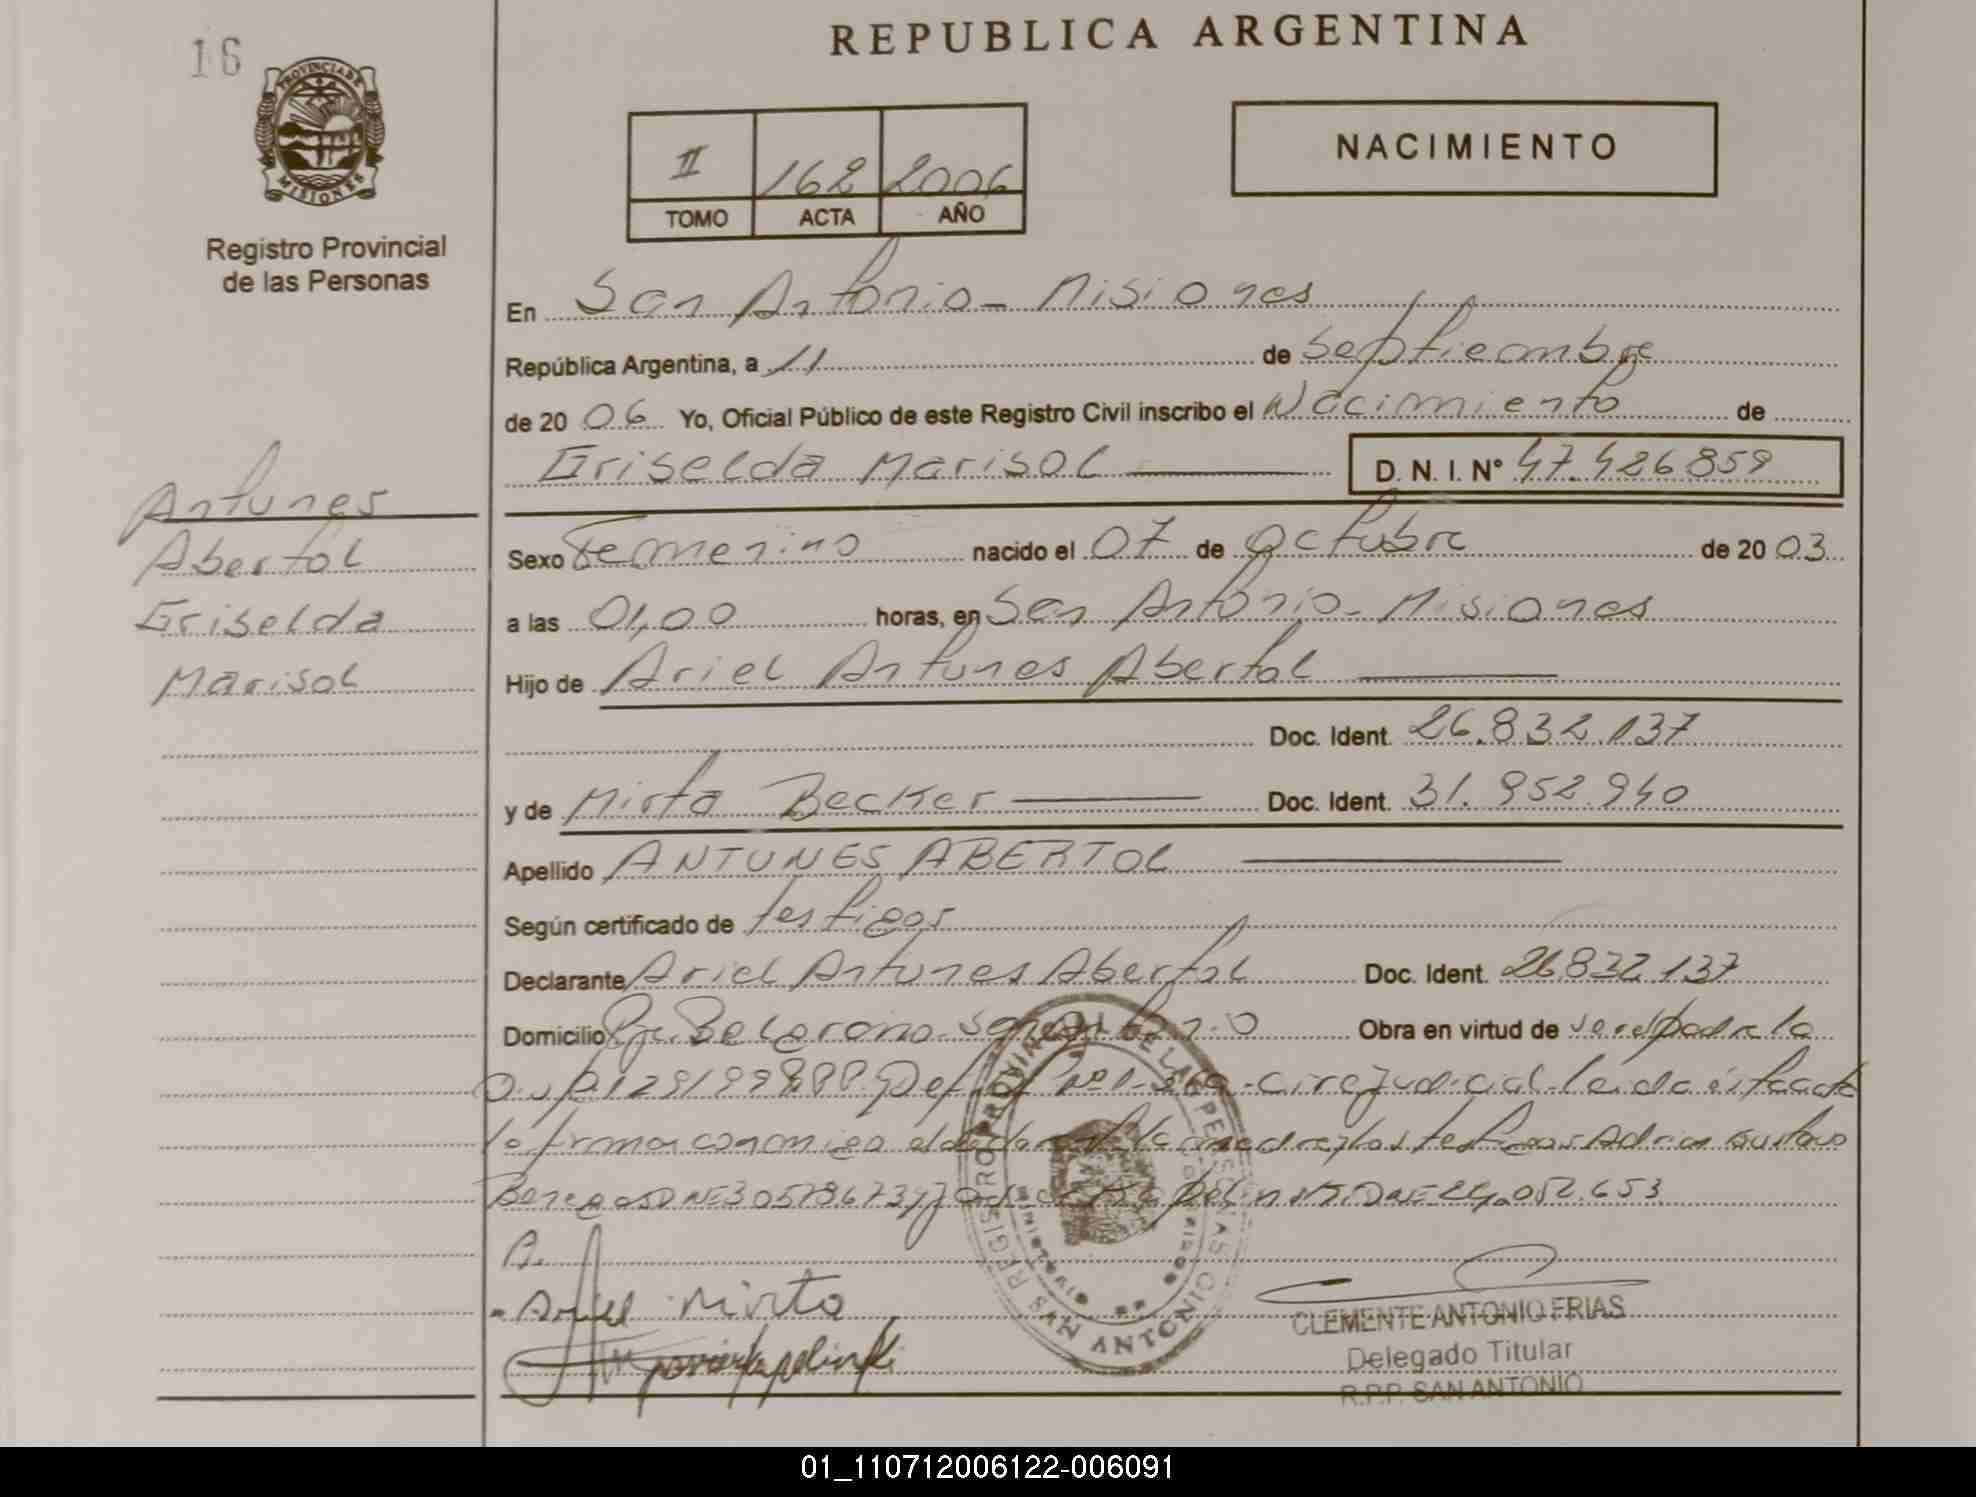 16
REPUBLICA ARGENTINA
PROVINCIA DE
MISIONES
Registro Provincial
de las Personas
II 162 2006
TOMO ACTA AÑO
NACIMIENTO
En San Antonio - Misiones
República Argentina, a 11 de Septiembre
de 20 06 Yo, Oficial Público de este Registro Civil inscribo el Nacimiento de
Griselda Marisol D. N. I. N° 47.426.859
Antunes
Abertol
Griselda
Marisol
Sexo Femenino nacido el 07 de Octubre de 20 03
a las 01,00 horas, en San Antonio - Misiones
Hijo de Ariel Antunes Abertol
Doc. Ident. 26.832.137
y de Mirta Becker Doc. Ident. 31.952.940
Apellido ANTUNES ABERTOL
Según certificado de testigos
Declarante Ariel Antunes Abertol Doc. Ident. 26.832.137
Domicilio Pje. Belgrano San Antonio Obra en virtud de ser el padre la
129/99 Nº 1 judicial leida
la firman conmigo el declarante la madre y los testigos Gustavo
30578673 24.052.653
Ariel Mirta
REGISTRO PROVINCIAL DE LAS PERSONAS
SAN ANTONIO
CLEMENTE ANTONIO FRIAS
Delegado Titular
R.P.P. SAN ANTONIO
01_110712006122-006091